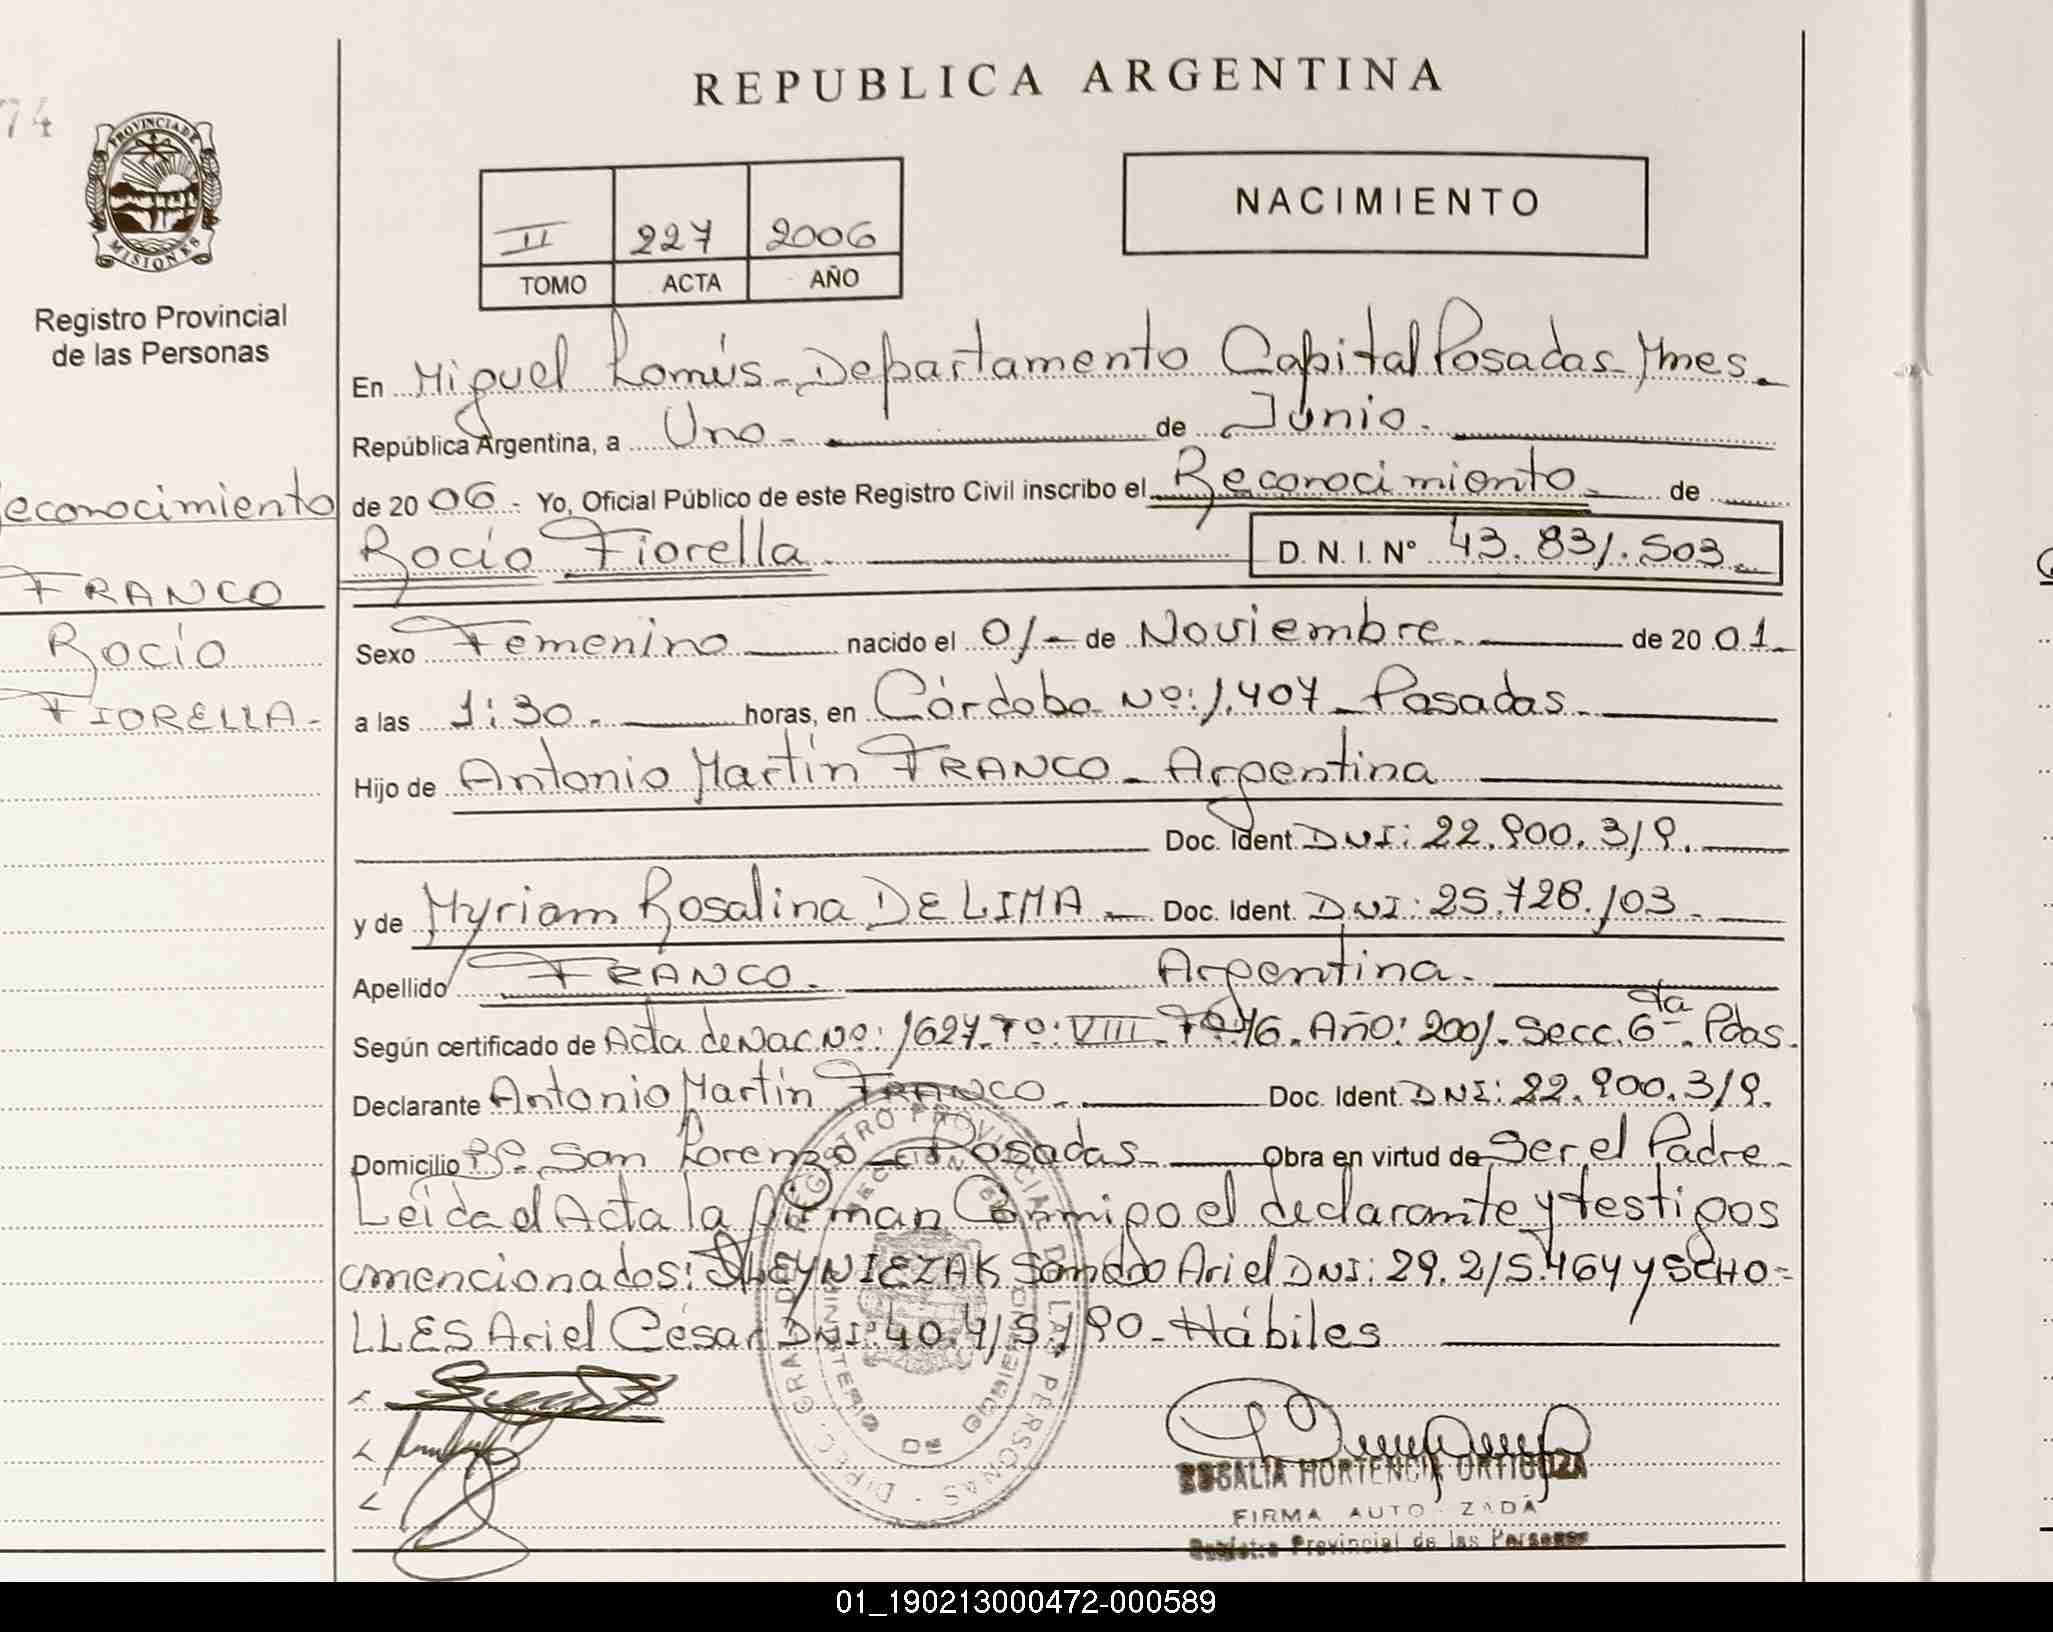 REPUBLICA ARGENTINA
74
PROVINCIA DE
MISIONES
Registro Provincial
de las Personas
NACIMIENTO
II 227 2006
TOMO ACTA AÑO
En Miguel Lanús - Departamento Capital Posadas Mnes.
República Argentina, a Uno - de Junio.
de 20 06 - Yo, Oficial Público de este Registro Civil inscribo el Reconocimiento - de
Rocío Fiorella D. N. I. Nº 43.831.503
econocimiento
FRANCO
Rocío
FIORELLA -
Sexo Femenino nacido el 01 - de Noviembre. de 20 01
a las 1:30. horas, en Córdoba Nº: 1.407 - Posadas -
Hijo de Antonio Martín FRANCO - Argentina
Doc. Ident. DNI: 22.900.319.
y de Myriam Rosalina DE LIMA - Doc. Ident. DNI: 25.728.103 -
Apellido FRANCO. Argentina.
Según certificado de Acta de Nac Nº: 1627. Tº: VIII - Fº 46. Año: 2001. Secc. 6ta. Pdas.
Declarante Antonio Martín FRANCO - Doc. Ident. DNI: 22.900.319.
Domicilio Bº San Lorenzo - Posadas - Obra en virtud de Ser el Padre -
Leida el Acta la firman Conmigo el declarante y testigos
mencionados: Ariel DNI: 29.215.464 y SCHO-
LLES Ariel César DNI: 40.415.190 - Hábiles
DIREC. GRAL. DEL REGISTRO PROVINCIAL DE LAS PERSONAS
MINISTERIO DE GOBIERNO
ROSALIA HORTENCIA ORTIGOZA
FIRMA AUTO ZADA
Registro Provincial de las Personas
01_190213000472-000589